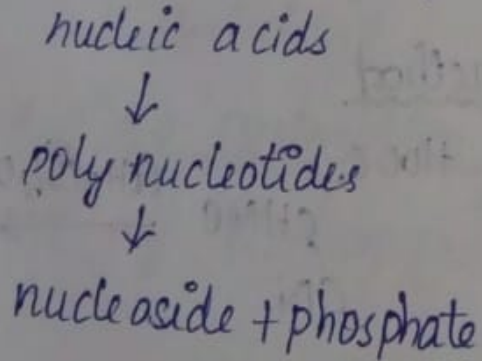 nucleic acids
↓
poly nucleotides
↓
nucleoside + phosphate